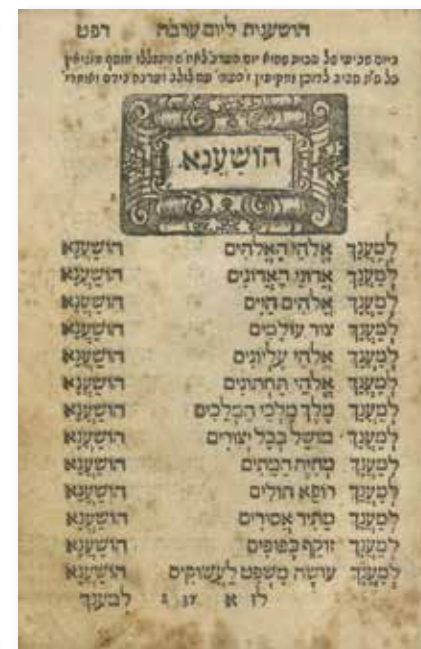 הושענית ליום ערבה רפט
הוֹשַׁעֲנָא
לְמַעֲנָךְ אֱלֹהֵי הָאֱלֹהִים הוֹשַׁעֲנָא
לְמַעֲנָךְ אֲדוֹנֵי הָאֲדוֹנִים הוֹשַׁעֲנָא
לְמַעֲנָךְ אֱלֹהִים חַיִּים הוֹשַׁעֲנָא
לְמַעֲנָךְ צוּר עוֹלָמִים הוֹשַׁעֲנָא
לְמַעֲנָךְ אֱלֹהֵי עֶלְיוֹנִים הוֹשַׁעֲנָא
לְמַעֲנָךְ אֱלֹהֵי תַּחְתּוֹנִים הוֹשַׁעֲנָא
לְמַעֲנָךְ מֶלֶךְ מַלְכֵי הַמְּלָכִים הוֹשַׁעֲנָא
לְמַעֲנָךְ מוֹשֵׁל בְּכָל יְצוּרִים הוֹשַׁעֲנָא
לְמַעֲנָךְ מְחַיֵּה הַמֵּתִים הוֹשַׁעֲנָא
לְמַעֲנָךְ רוֹפֵא חוֹלִים הוֹשַׁעֲנָא
לְמַעֲנָךְ מַתִּיר אֲסִירִים הוֹשַׁעֲנָא
לְמַעֲנָךְ זוֹקֵף כְּפוּפִים הוֹשַׁעֲנָא
לְמַעֲנָךְ עוֹשֶׂה מִשְׁפָּט לַעֲשׁוּקִים הוֹשַׁעֲנָא
לז א 37 למענך